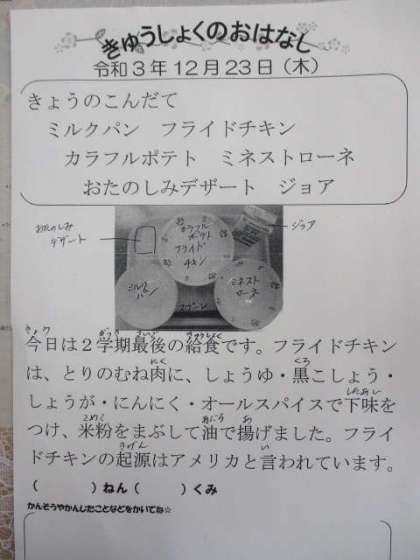 きゅうしょくのおはなし
令和3年12月23日（木）
きょうのこんだて
ミルクパン　フライドチキン
カラフルポテト　ミネストローネ
おたのしみデザート　ジョア
おたのしみ
デザート
カラフル
ポテト
フライド
チキン
ジョア
ミルク
パン
ミネスト
ローネ
スプーン
今日は2学期最後の給食です。フライドチキン
は、とりのむね肉に、しょうゆ・黒こしょう・
しょうが・にんにく・オールスパイスで下味を
つけ、米粉をまぶして油で揚げました。フライ
ドチキンの起源はアメリカと言われています。
（　　　）ねん（　　　）くみ
かんそうやかんしたことなどをかいてね☆